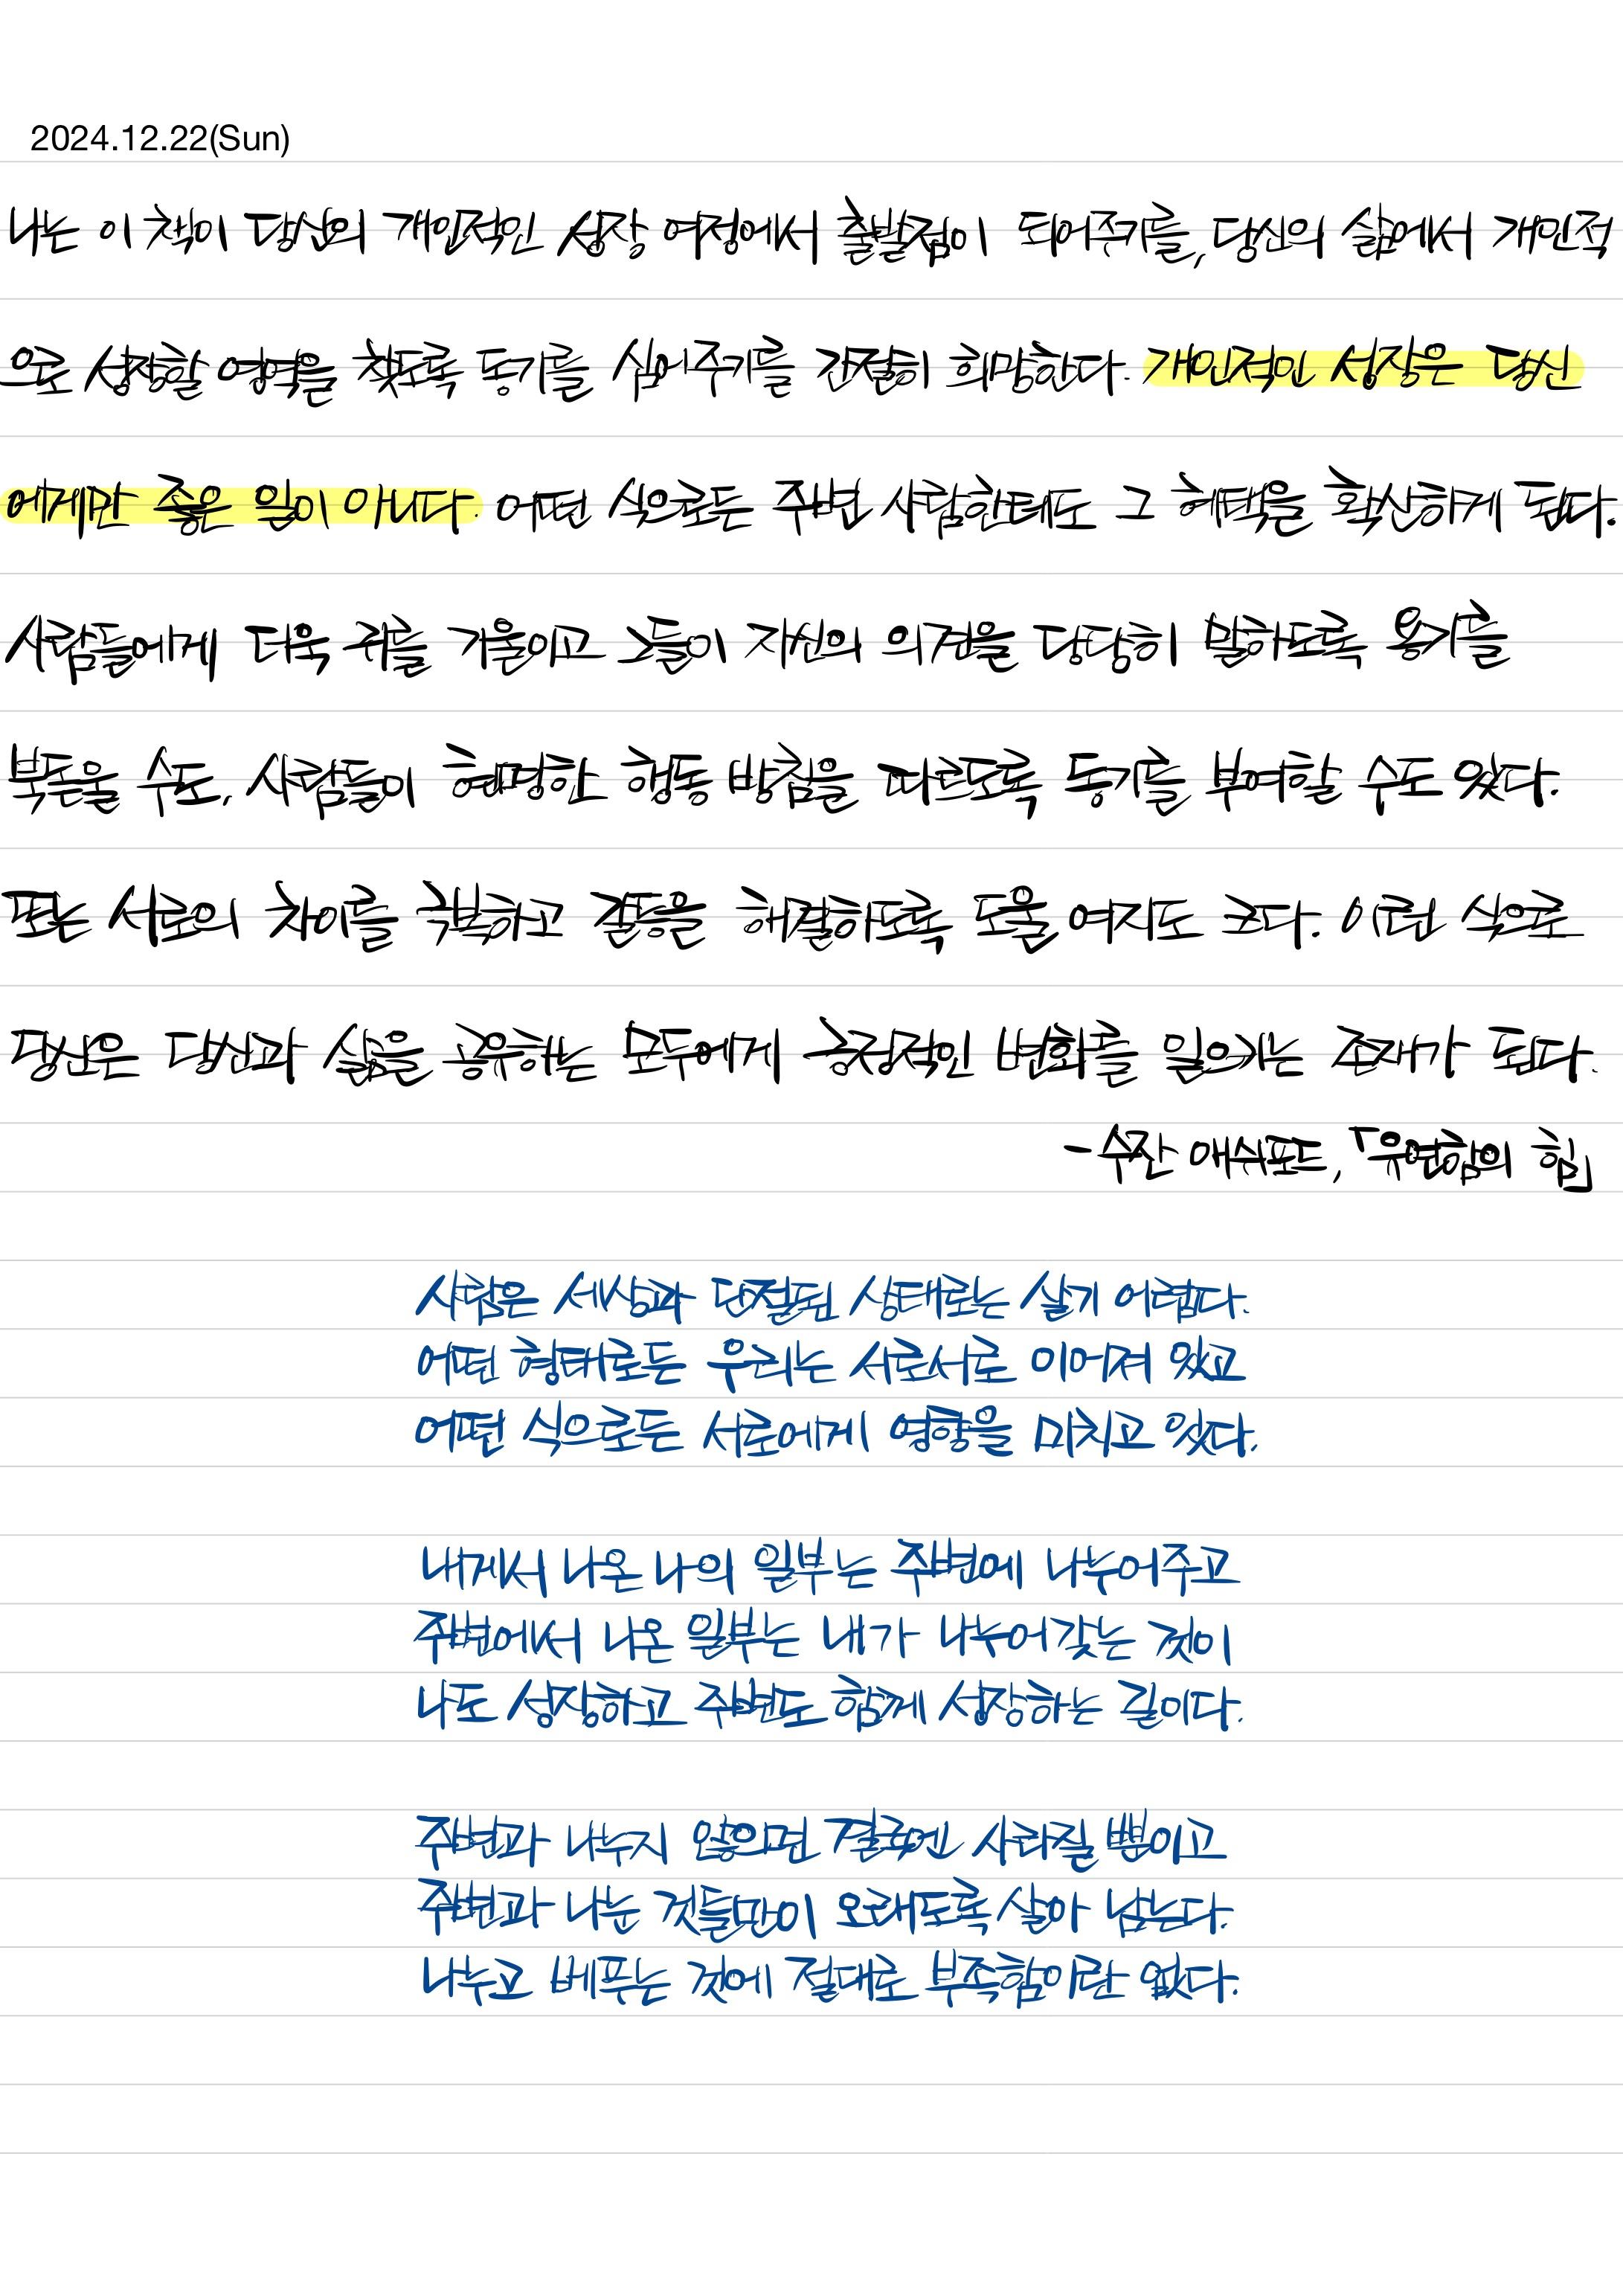 2024.12.22(Sun)
나는 이 책이 당신의 개인적인 성장 여정에서 출발점이 되어주기를, 당신의 삶에서 개인적
으로 성장할 영역을 찾도록 동기를 심어주기를 간절히 희망한다. 개인적인 성장은 당신
에게만 좋은 일이 아니다. 어떤 식으로든 주변 사람한테도 그 혜택을 확산하게 된다.
사람들에게 더욱 귀를 기울이고 그들이 자신의 의견을 당당히 말하도록 용기를
북돋울 수도, 사람들이 현명한 행동 방침을 따르도록 동기를 부여할 수도 있다.
또는 서로의 차이를 극복하고 갈등을 해결하도록 도울 여지도 크다. 이런 식으로
당신은 당신과 삶을 공유하는 모두에게 긍정적인 변화를 일으키는 존재가 된다.
- 수잔 애쉬포드, 「유연함의 힘」
사람은 세상과 단절된 상태로는 살기 어렵다.
어떤 형태로든 우리는 서로서로 이어져 있고
어떤 식으로든 서로에게 영향을 미치고 있다.
내게서 나온 나의 일부는 주변에 나누어주고
주변에서 나온 일부는 내가 나누어갖는 것이
나도 성장하고 주변도 함께 성장하는 길이다.
주변과 나누지 않으면 결국엔 사라질 뿐이고
주변과 나눈 것들만이 오래도록 살아 남는다.
나누고 베푸는 것에 절대로 부족함이란 없다.